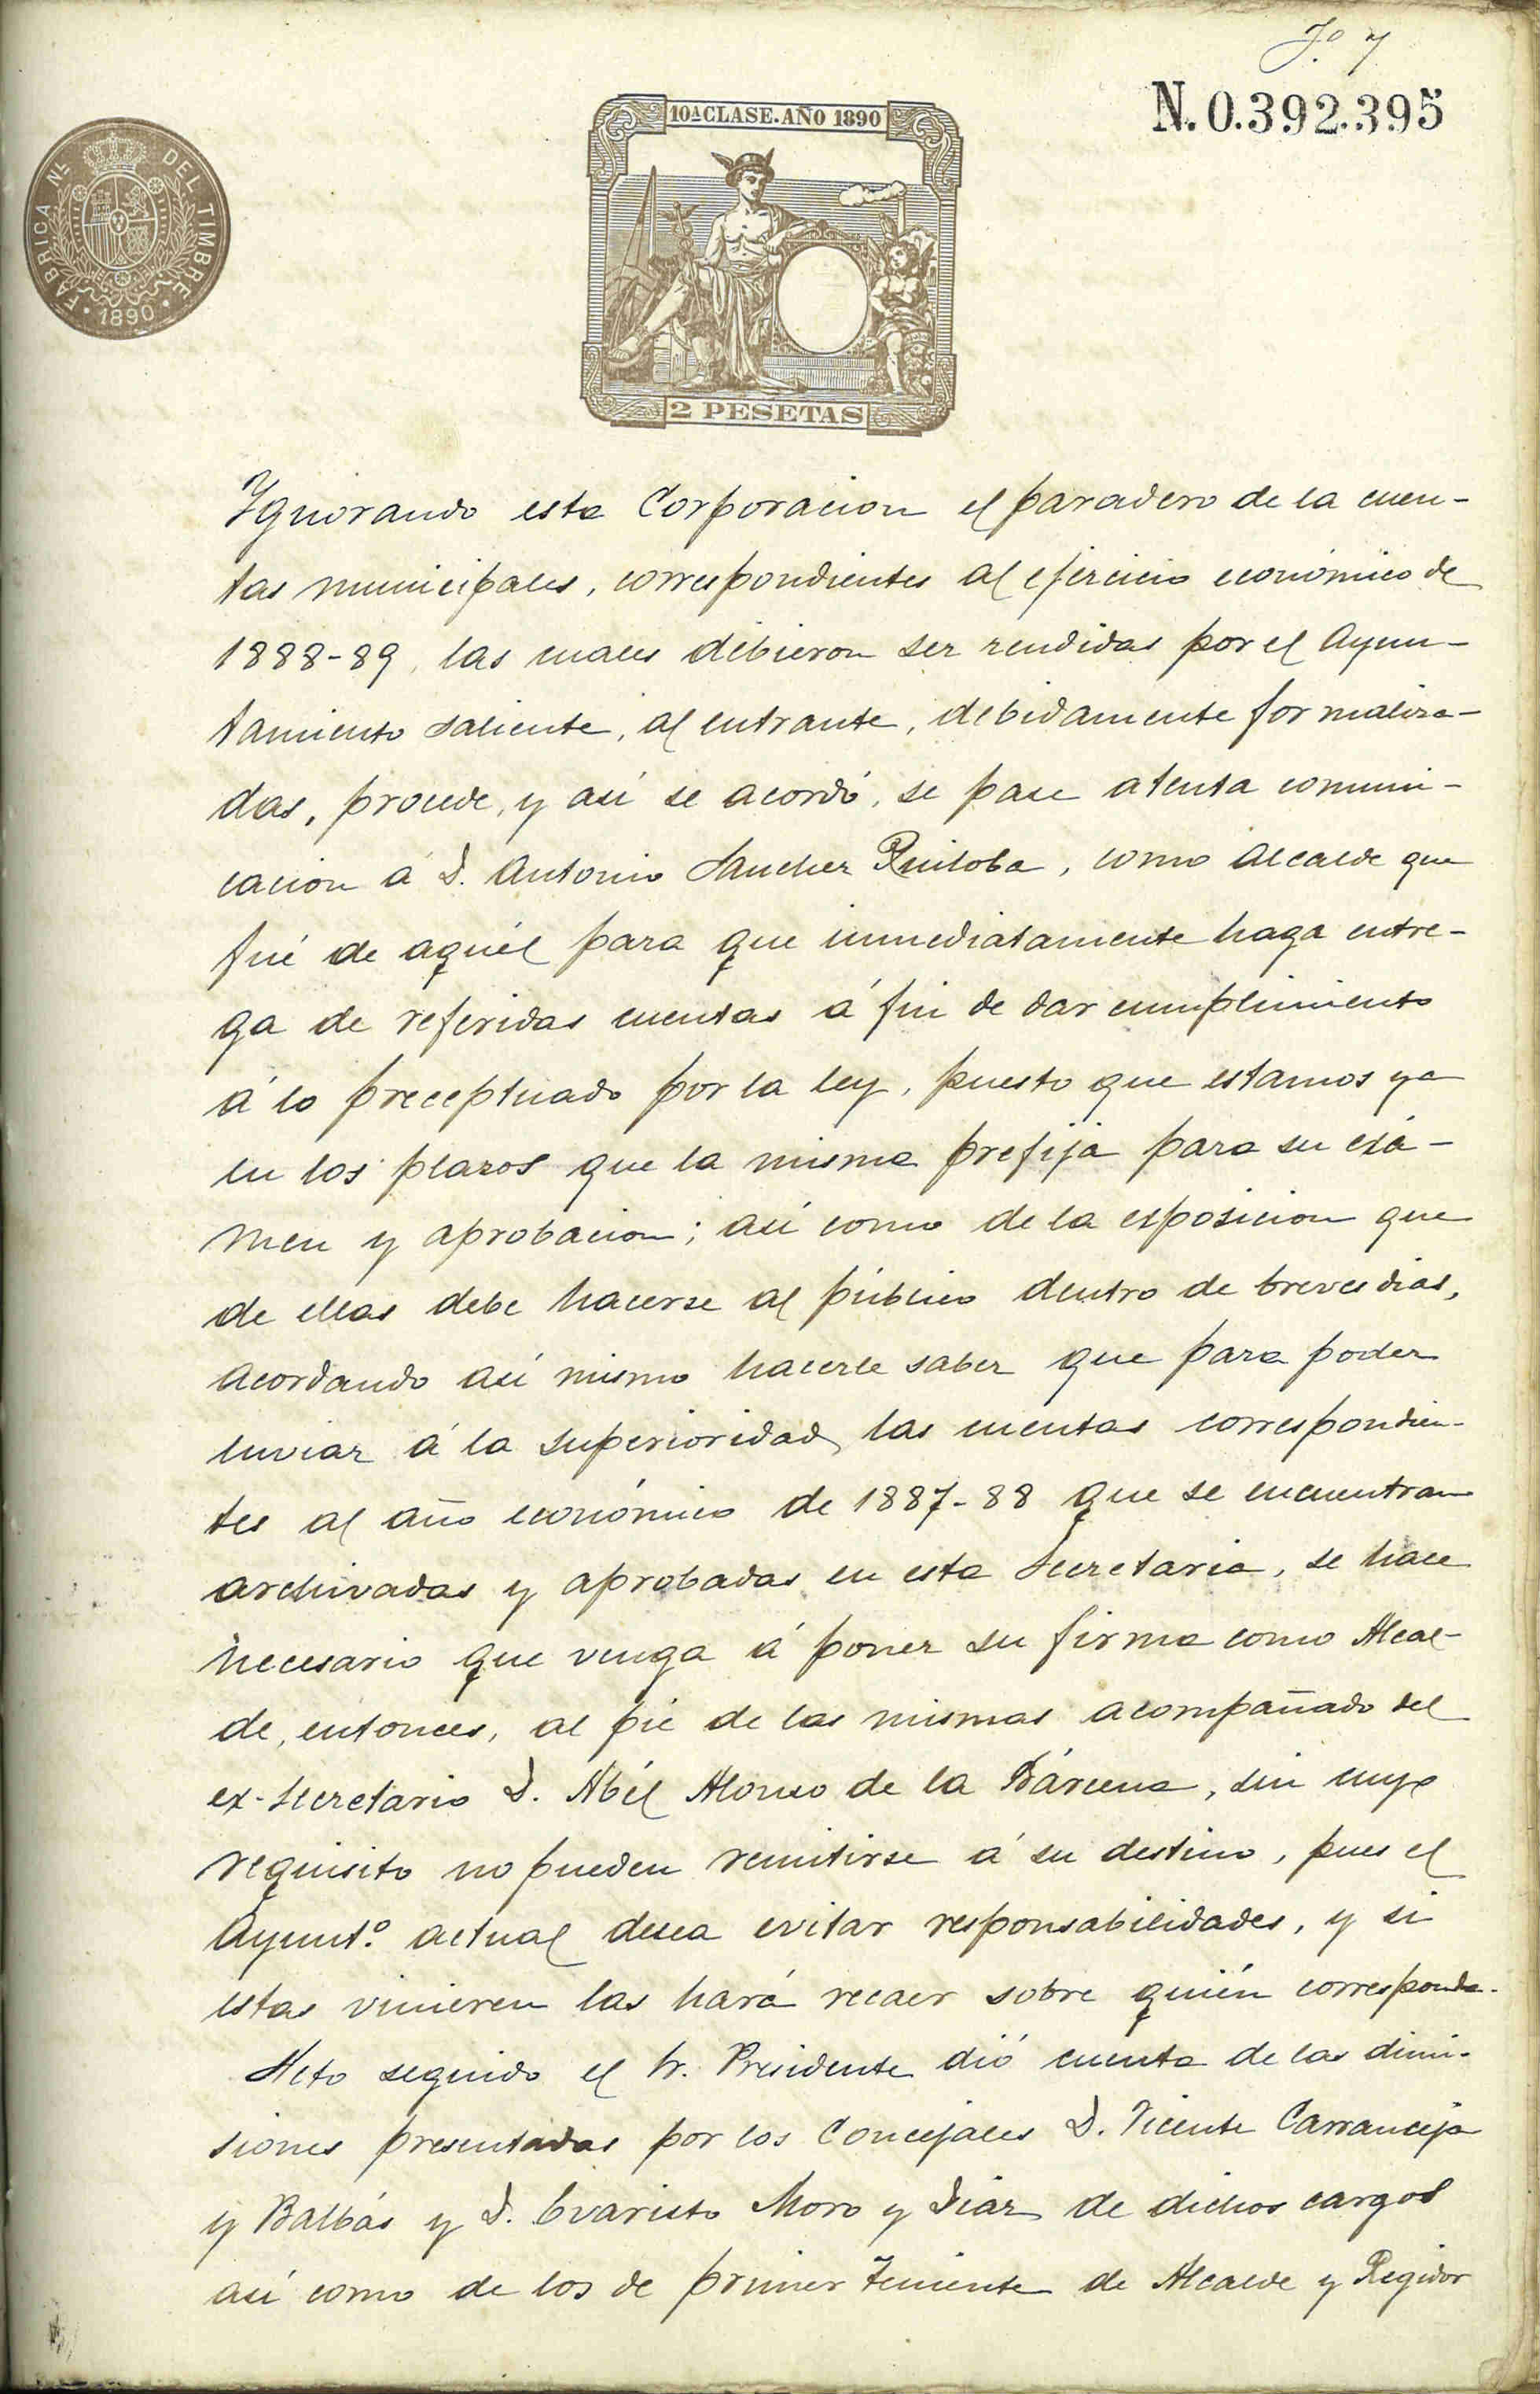 Fº 7
N. 0.392.395
10ª CLASE. AÑO 1890
FABRICA Nˡ DEL TIMBRE
1890
2 PESETAS
Ygnorando esta Corporacion el paradero de la cuen-
tas municipales, correspondientes al ejercicio económico de
1888-89, las cuales debieron ser rendidas por el Ayun-
tamiento saliente, al entrante, debidamente formaliza-
das, procede, y así se acordó, se pase atenta comuni-
cacion á D. Antonio Sanchez Ruiloba, como Alcalde que
fué de aquél para que inmediatamente haga entre-
ga de referidas cuentas á fin de dar cumplimiento
á lo preceptuado por la ley, puesto que estamos ya
en los plazos que la misma prefija para su exá-
men y aprobacion; así como de la esposicion que
de ellas debe hacerse al público dentro de breves dias,
acordando así mismo hacerle saber que para poder
enviar á la superioridad las cuentas correspondien-
tes al año económico de 1887-88 que se encuentran
archivadas y aprobadas en esta Secretaria, se hace
necesario que venga á poner su firma como Alcal-
de, entonces, al pié de las mismas acompañado del
ex-Secretario D. Abél Alonso de la Bárcena, sin cuyo
requisito no pueden remitirse á su destino, pues el
Ayuntº. actual desea evitar responsabilidades, y si
estas vinieren las hará recaer sobre quién corresponda.
Acto seguido el Sr. Presidente dió cuenta de las dimi-
siones presentadas por los Concejales D. Vicente Carranceja
y Balbás y D. Evaristo Moro y Diaz de dichos cargos
así como de los de primer Teniente de Alcalde y Regidor